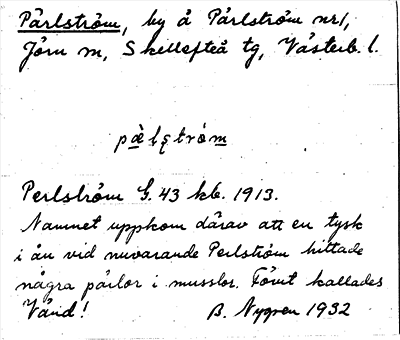 Pärlström, by å Pärlström nr 1,
Jörn sn, Skellefteå tg, Västerb. l.
pæ̀lstróm
Perlström G. 43 kb. 1913.
Namnet uppkom därav att en tysk
i ån vid nuvarande Perlström hittade
några pärlor i musslor. Förut kallades
Vånd!
B. Nygren 1932